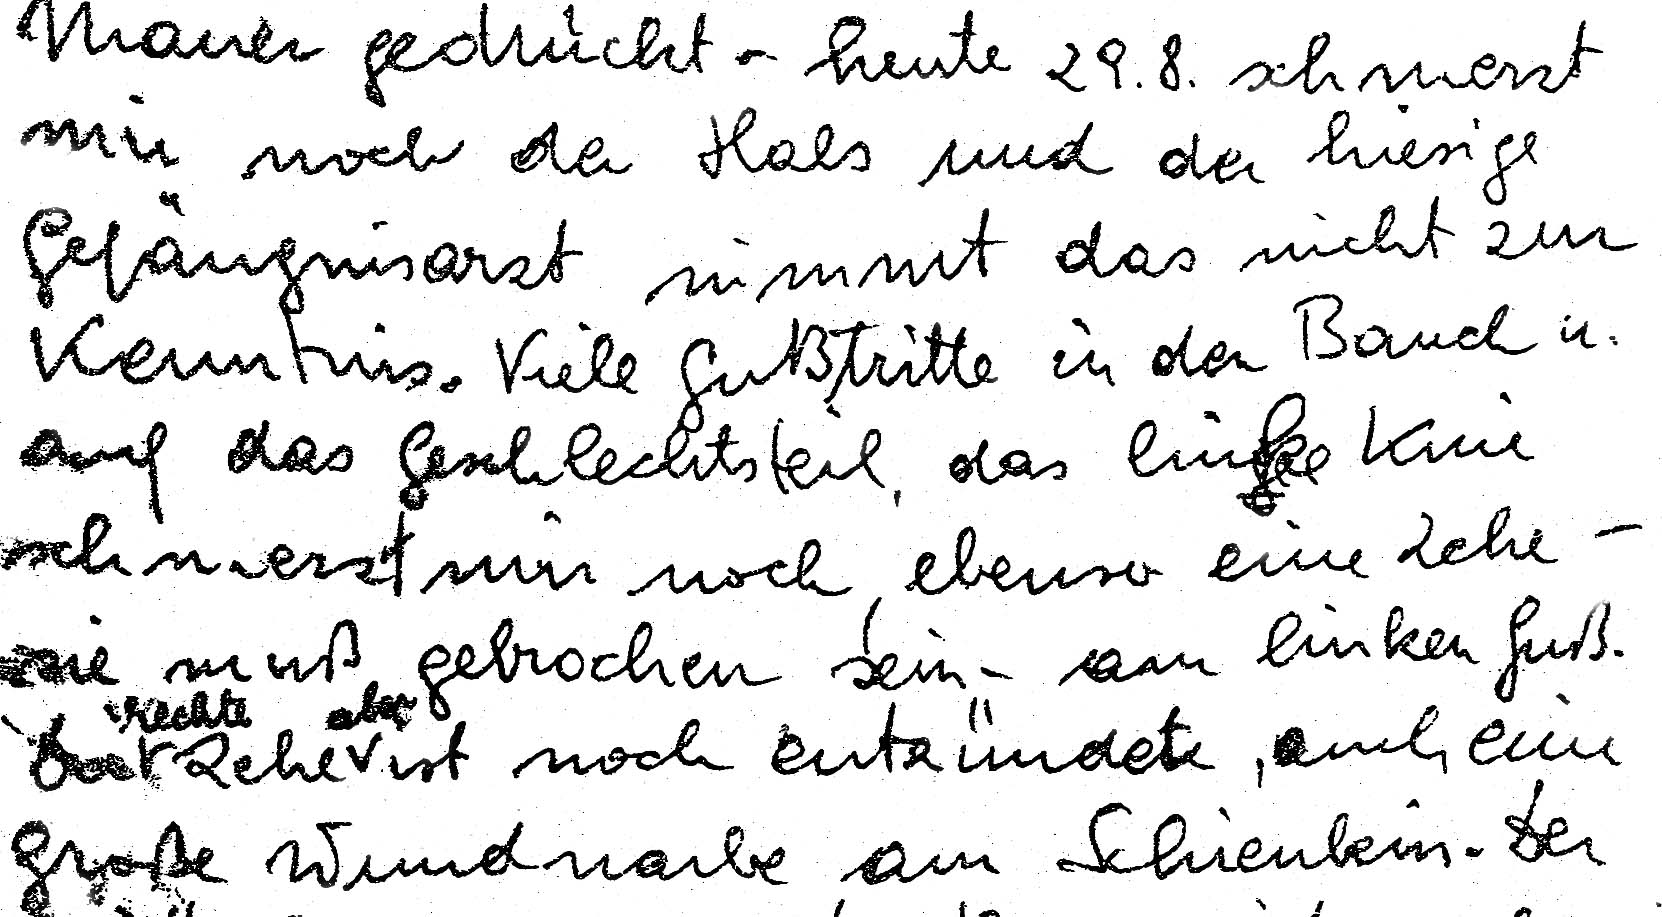 Mauer gedrückt - heute 29.8. schmerzt
mir noch der Hals und der hiesige
Gefängnisarzt nimmt das nicht zur
Kenntnis. Viele Fußtritte in den Bauch u.
auf das Geschlechtsteil, das linke Knie
schmerzt mir noch, ebenso eine Zehe -
sie muß gebrochen sein - am linken Fuß.
rechte aber
Zehe ist noch entzündete, auch eine
große Wundnarbe am Schienbein. Der